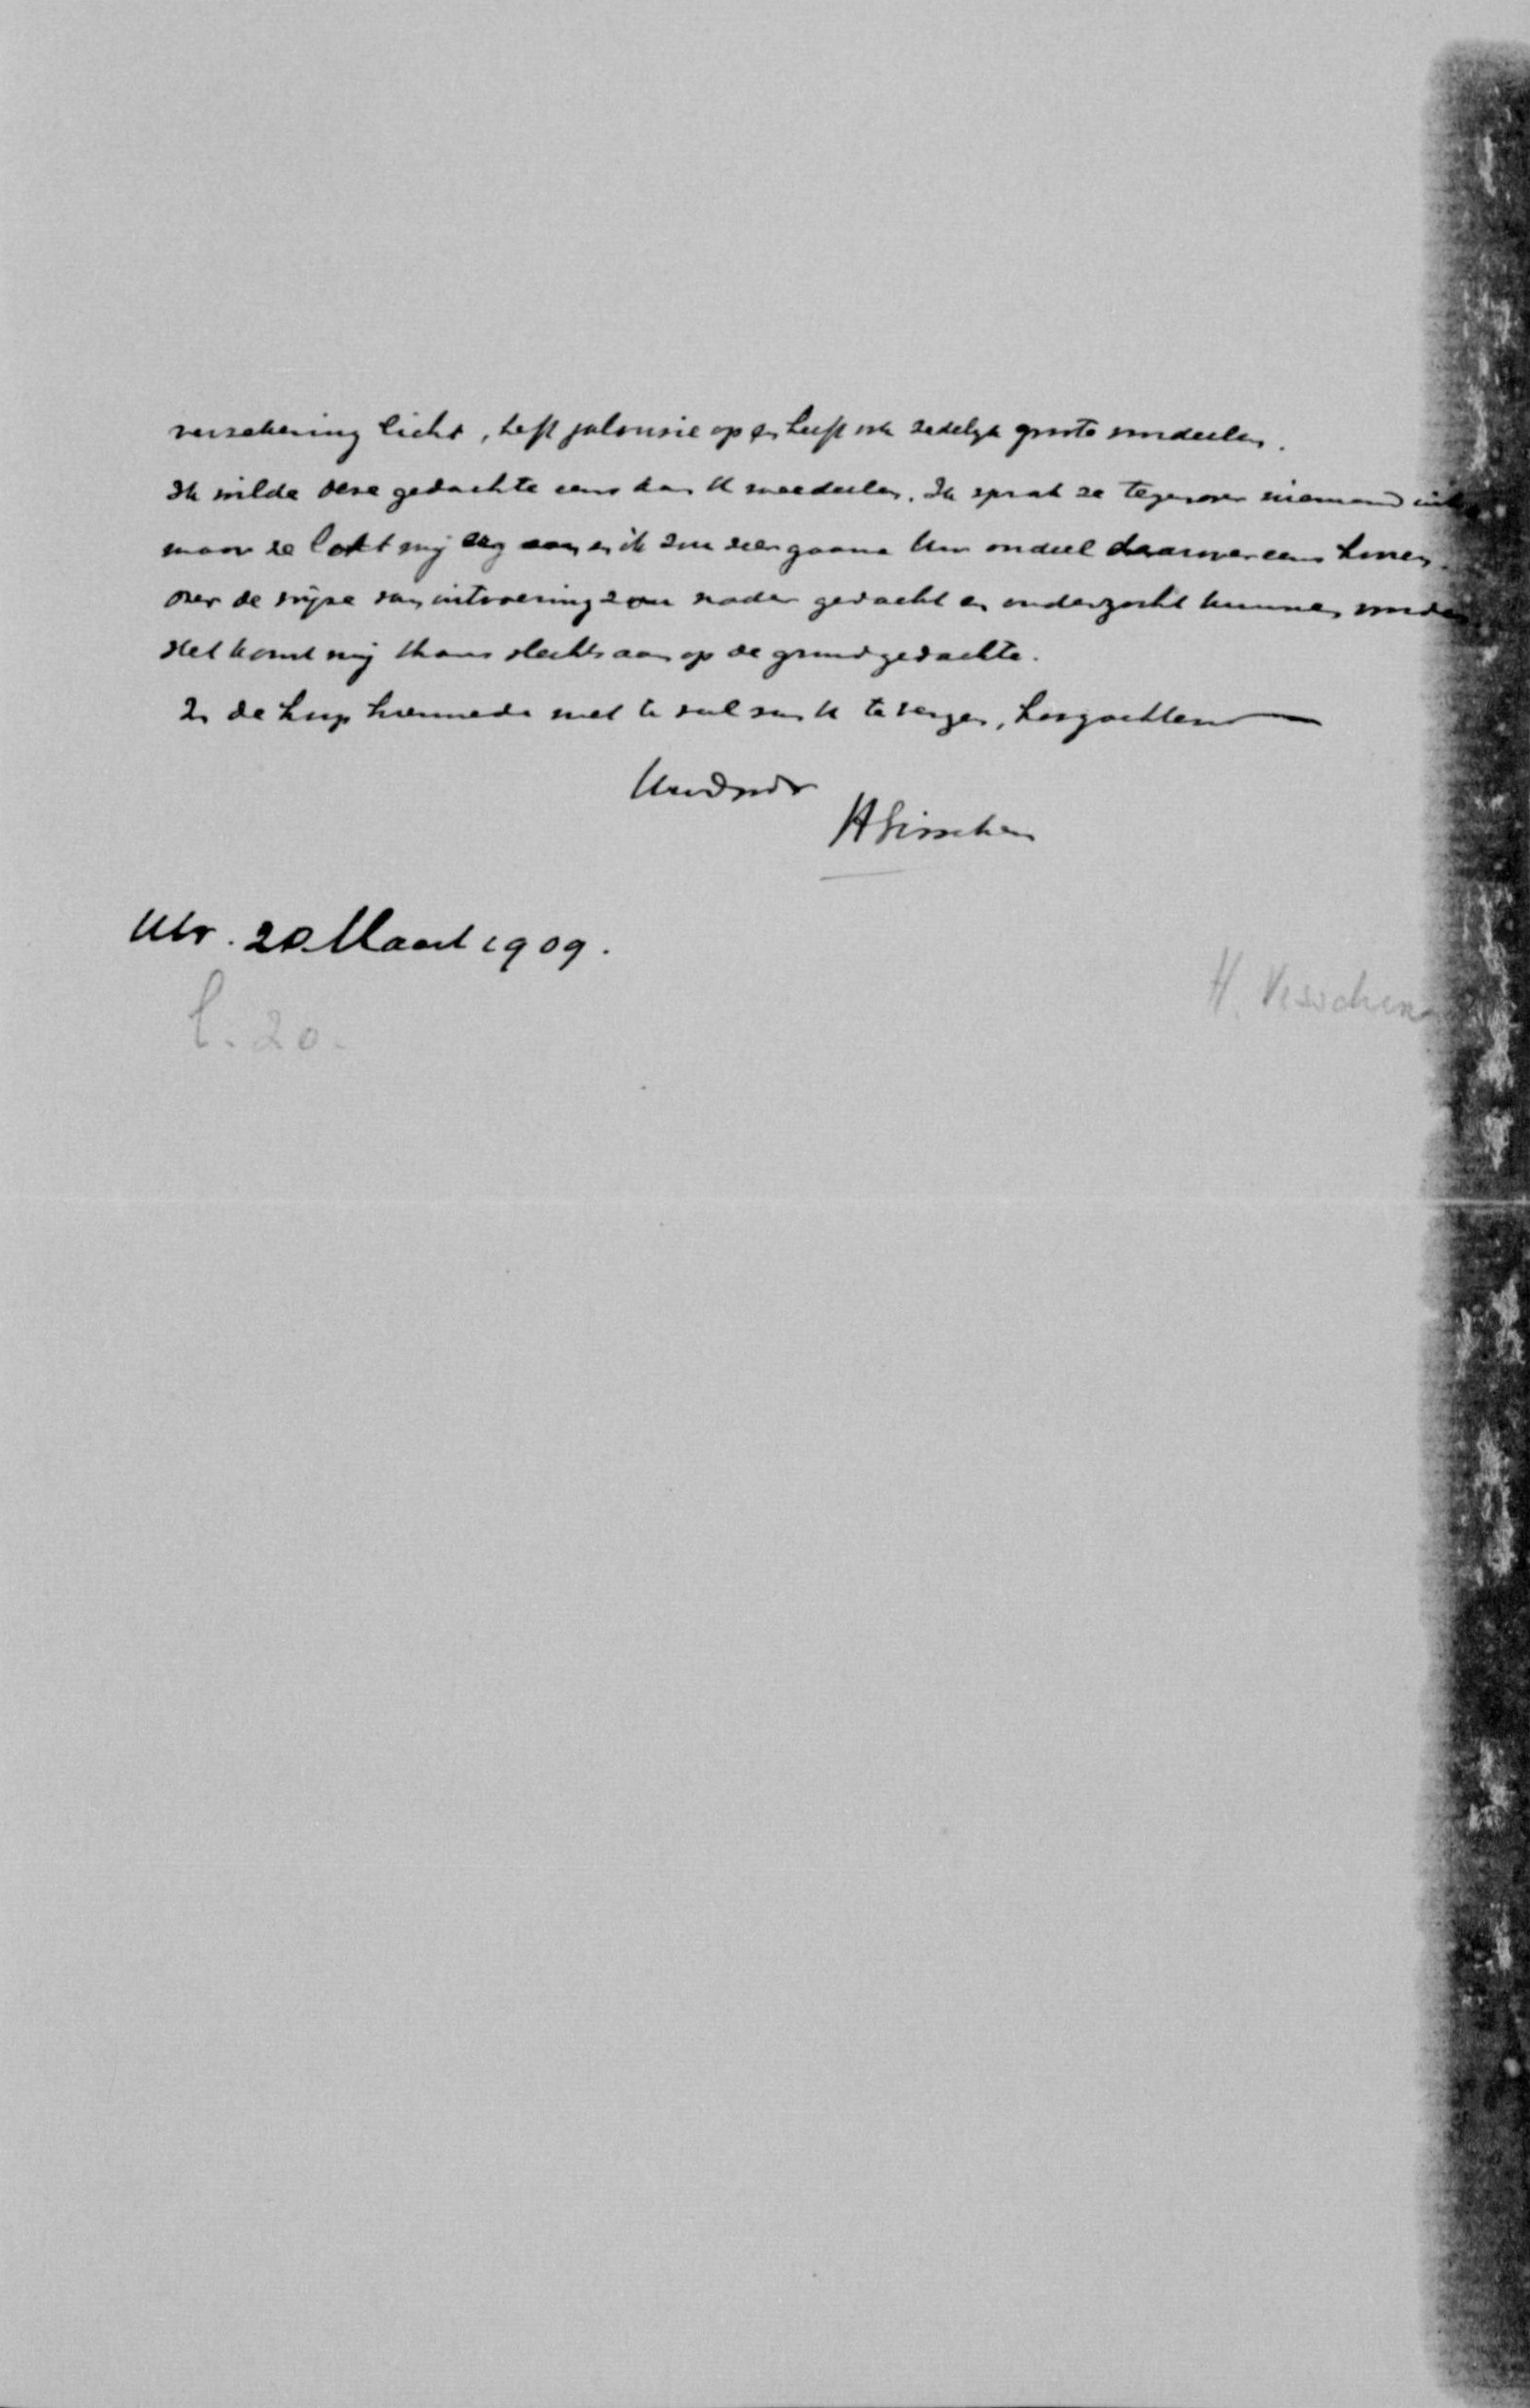 verzekering licht, heft jalousie op en heeft ook zedelijk groote voordeelen.
Ik wilde deze gedachte eens aan U meedeelen. Ik sprak ze tegenover niemand
maar ze lokt mij erg aan en ik zou zeer gaarne Uw oordeel daarover eens hooren.
Over de wijze van uitvoering zou nader gedacht en onderzocht kunnen worden
Het komt mij thans slechts aan op de grondgedachte.
In de hoop hiermede niet te veel van U te vergen, hoogachtend
UwDwDr
HVisscher
Utr. 20 Maart 1909.
H. Visscher
l. 20.